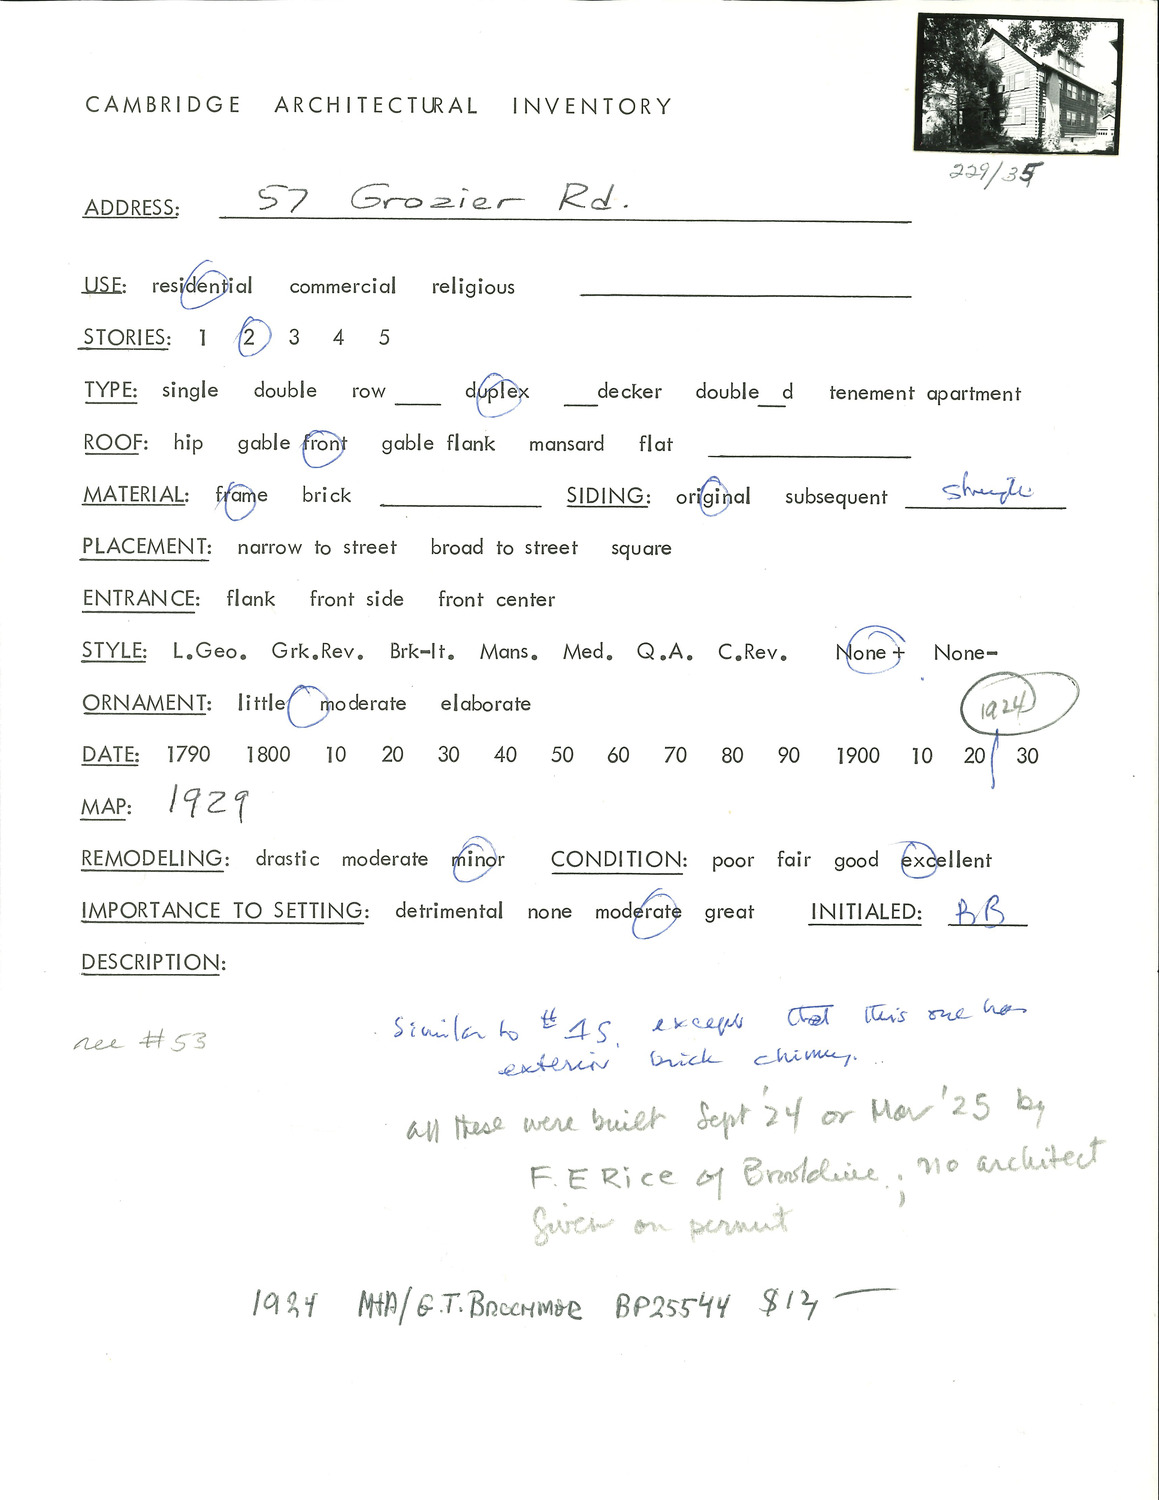 CAMBRIDGE ARCHITECTURAL INVENTORY
229/35
ADDRESS: 57 Grozier Rd.
USE: residential commercial religious
STORIES: 1 2 3 4 5
TYPE: single double row ___ duplex ___decker double__d tenement apartment
ROOF: hip gable front gable flank mansard flat
MATERIAL: frame brick SIDING: original subsequent shingle
PLACEMENT: narrow to street broad to street square
ENTRANCE: flank front side front center
STYLE: L.Geo. Grk.Rev. Brk-It. Mans. Med. Q.A. C.Rev. None + None-
ORNAMENT: little moderate elaborate
1924
DATE: 1790 1800 10 20 30 40 50 60 70 80 90 1900 10 20 30
MAP: 1929
REMODELING: drastic moderate minor CONDITION: poor fair good excellent
IMPORTANCE TO SETTING: detrimental none moderate great INITIALED: BB
DESCRIPTION:
see #53
Similar to #45, except that this one has
exterior brick chimney.
all these were built Sept '24 or Mar '25 by
F. E Rice of Brookline; no architect
given on permit
1924 G.T. BP25544 $12